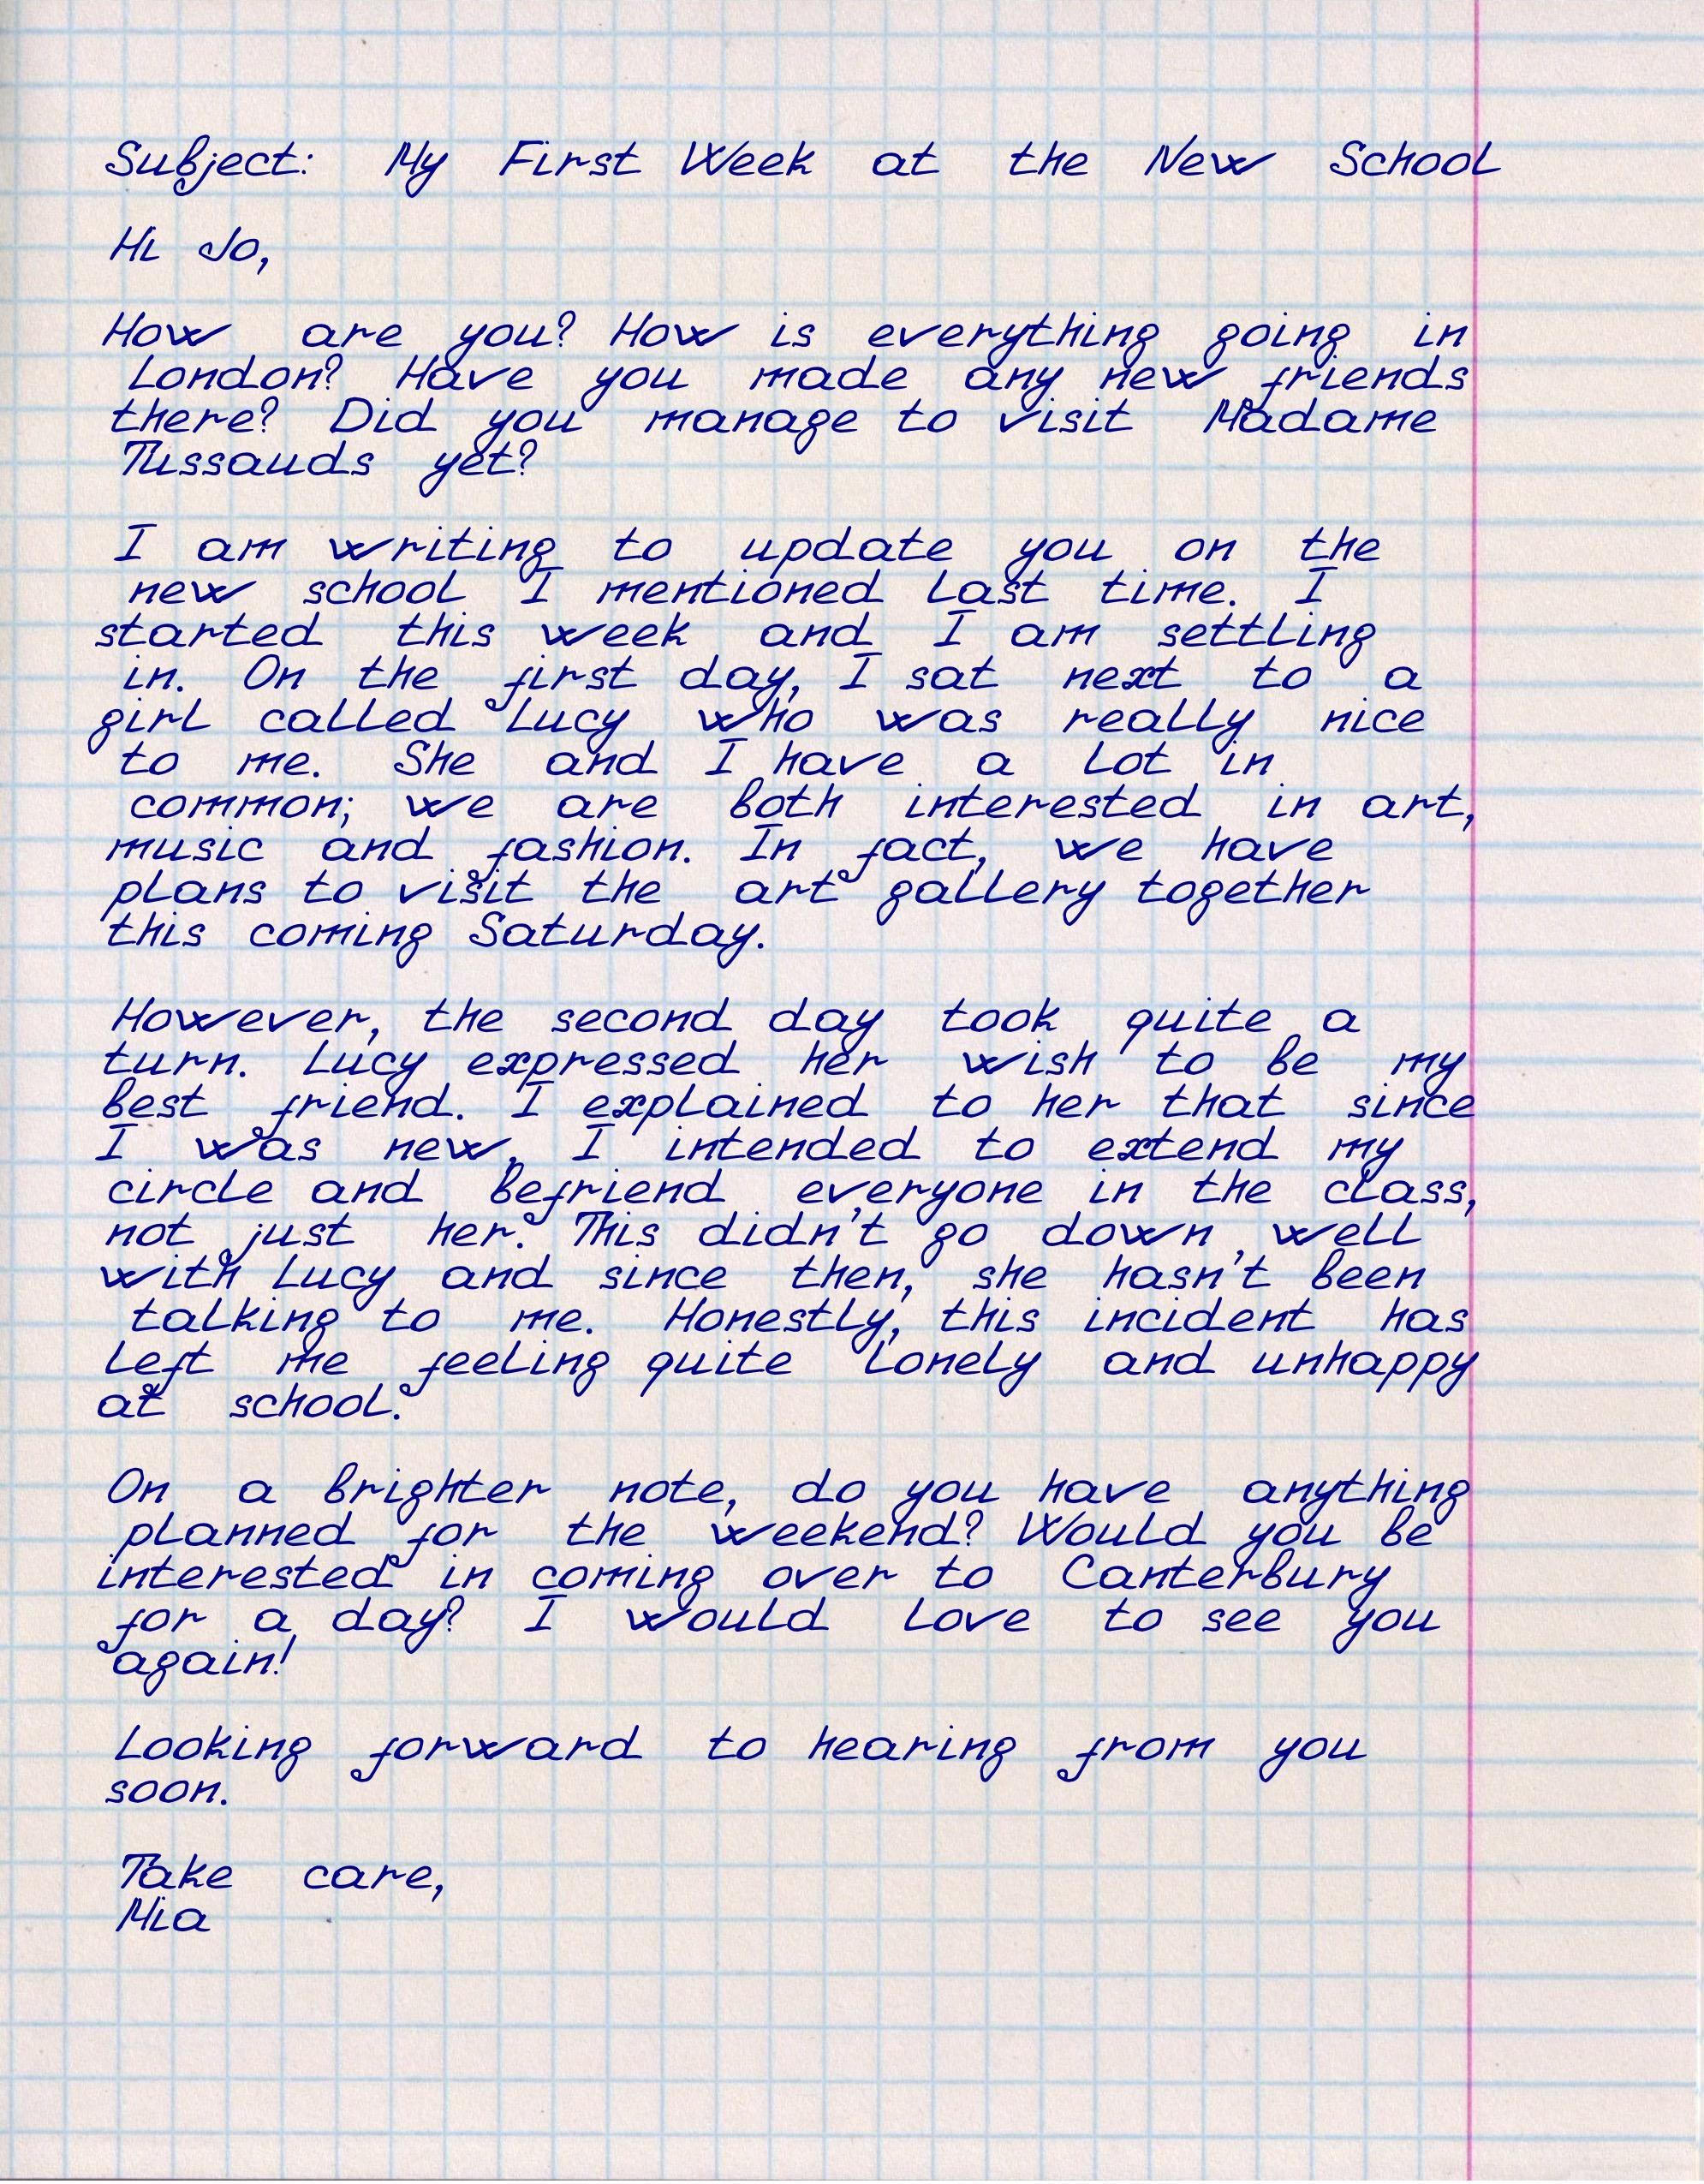 Subject: My First Week at the New School
Hi Jo,
How are you? How is everything going in
London? Have you made any new friends
there? Did you manage to visit Madame
Tussauds yet?
I am writing to update you on the
new school I mentioned last time. I
started this week and I am settling
in. On the first day, I sat next to a
girl called Lucy who was really nice
to me. She and I have a lot in
common; we are both interested in art,
music and fashion. In fact, we have
plans to visit the art gallery together
this coming Saturday.
However, the second day took quite a
turn. Lucy expressed her wish to be my
best friend. I explained to her that since
I was new, I intended to extend my
circle and befriend everyone in the class,
not just her. This didn't go down well
with Lucy and since then, she hasn't been
talking to me. Honestly, this incident has
left me feeling quite lonely and unhappy
at school.
On a brighter note, do you have anything
planned for the weekend? Would you be
interested in coming over to Canterbury
for a day? I would love to see you
again!
Looking forward to hearing from you
soon.
Take care,
Mia